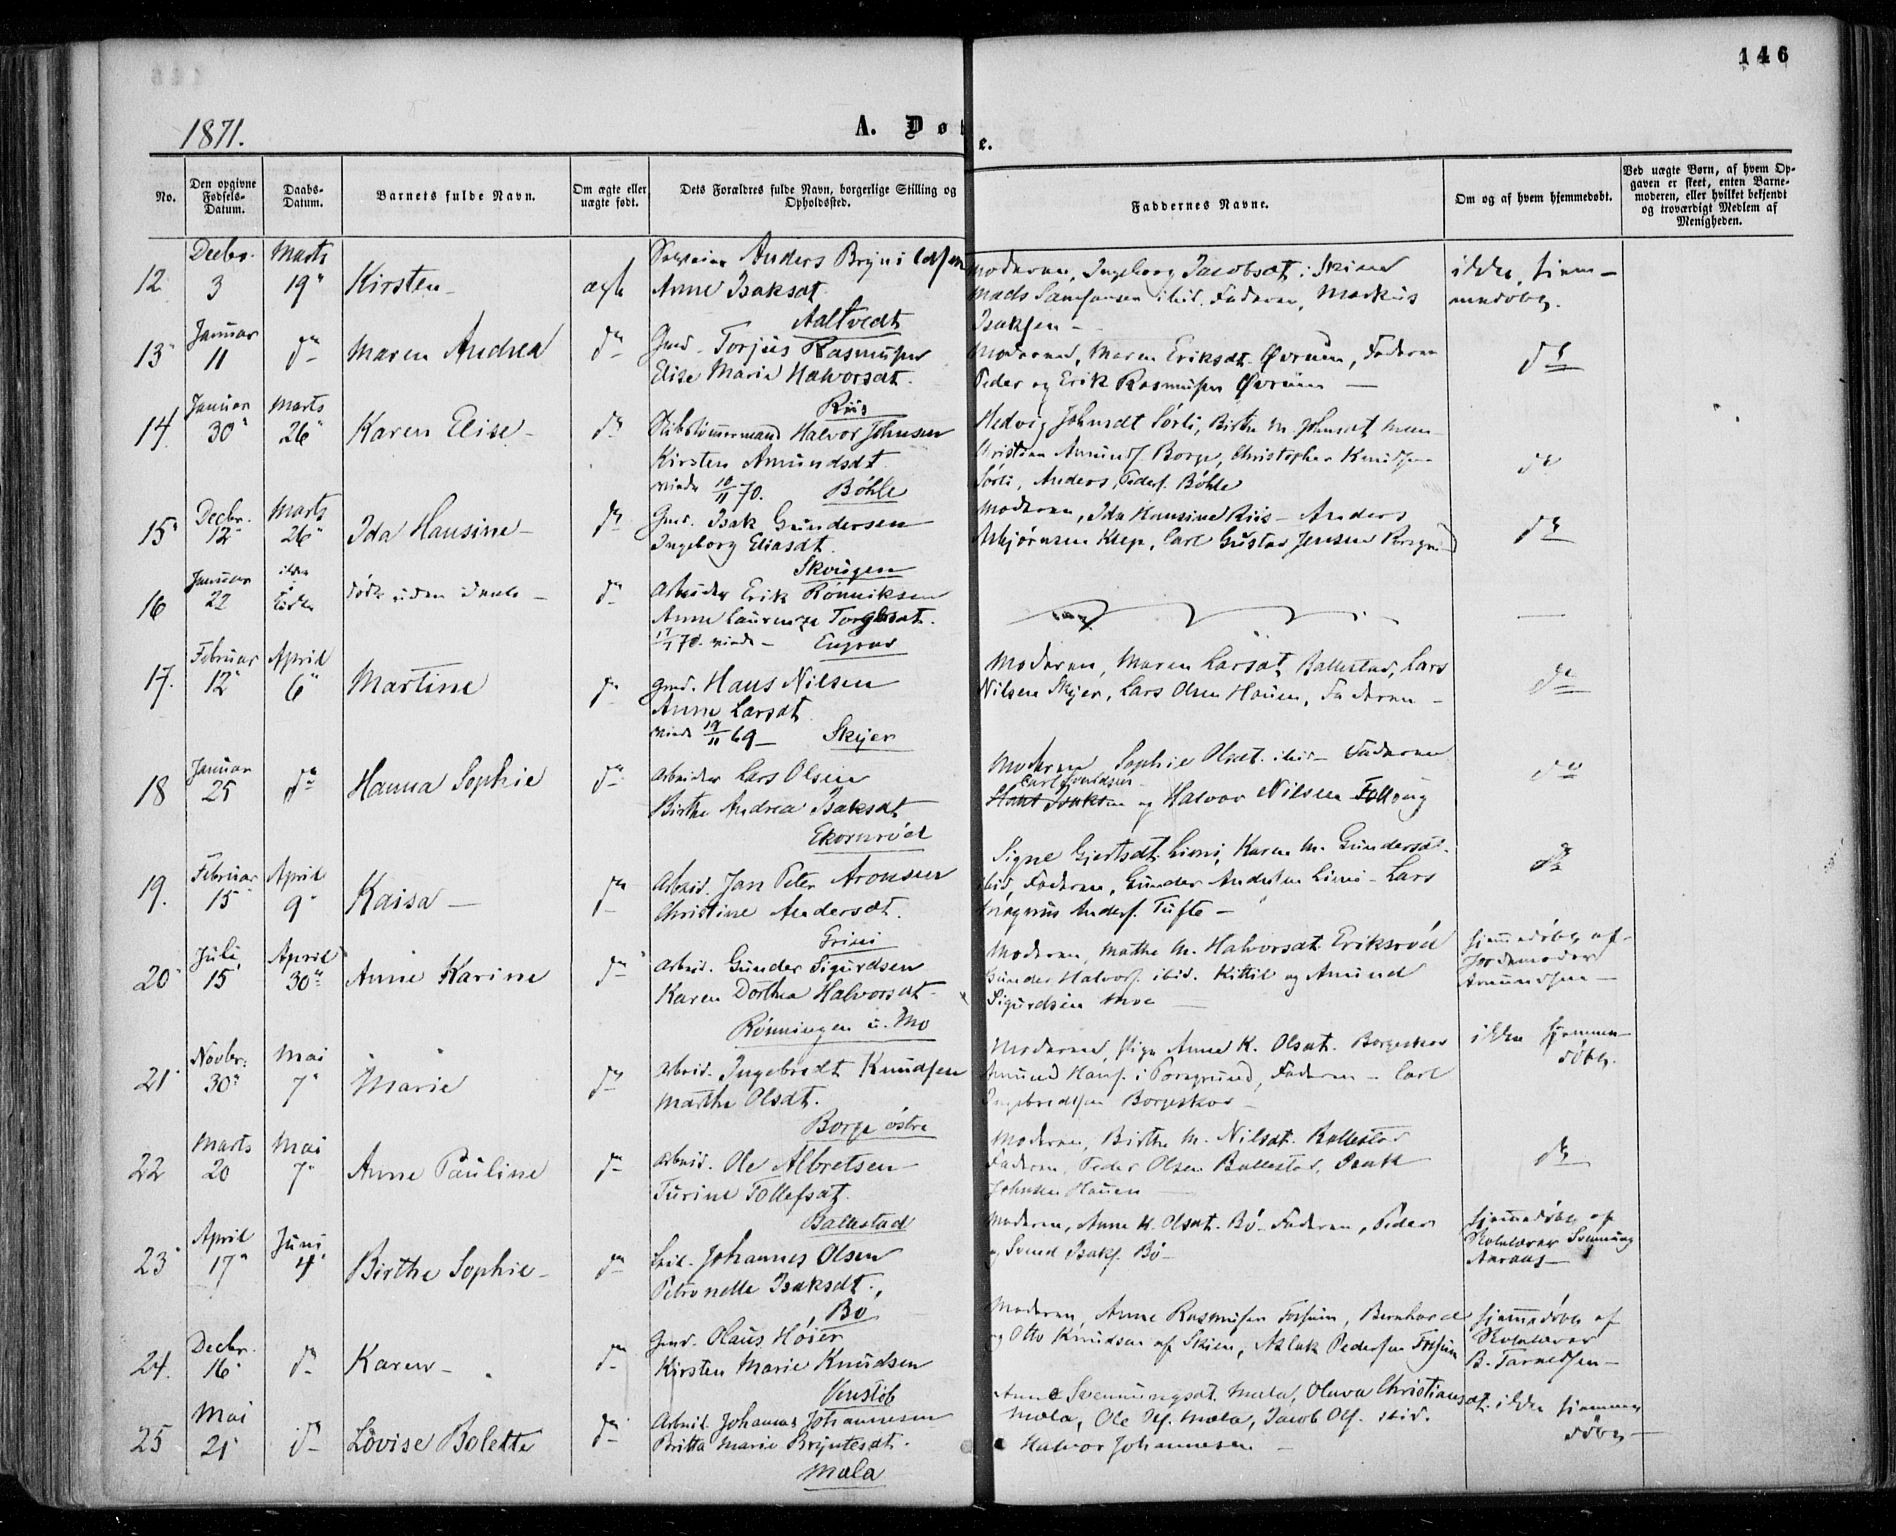 146
1871.
A. Dø e.
No.
Den opgivne Fødsels-Datum.
Daabs-Datum.
Barnets fulde Navn.
Om ægte eller uægte født.
Dets Forældres fulde Navn, borgerlige Stilling og Opholdssted.
Faddernes Navne.
Om og af hvem hjemmedøbt.
Ved uægte Børn, af hvem Opgaven er skeet, enten Barnemoderen, eller hvilket bekjendt og troværdigt Medlem af Menigheden.
12. Decbr. 3 Marts 19" Kirsten ægte Anders Brynildsen
Anne Isaksdt.
Aaltvedt
Moderen, Ingeborg Jacobsdt. i Skien
Mads Samsonsen ibid. Faderen, Markus
Isaksen
ikke hjemmedøbt.
13" Januar 11 do Maren Andrea do Gmd. Torjus Rasmussen
Elise Marie Halvorsdt.
Riis
Moderen, Maren Eriksdt. Øvrum, Faderen
Peder og Erik Rasmussen Øvrum
do
14. Januar 30" Marts 26" Karen Elise do Skibstimmermand Halvor Johnsen
Kirsten Amundsdt.
viede 10/11 70. Böhle
Hedvig Johnsdt Sörli, Birthe M. Johnsdt
Christian Amunds. Borge, Christopher Knudsen
Sörli, Anders Peders. Böhle
do
15" Decbr. 12" Marts 26" Ida Hansine do Gmd. Isak Gundersen
Ingeborg Eliasdt.
Moderen, Ida Hansine Riis - Anders
Asbjørnsen Klep, Carl Gustav Jensen
do
16 Januar 22 døde uden Daab do Arbeider Erik
Anne Laurenze
viede
17. Februar 12" April 6" Martine do Gmd. Hans Nilsen
Anne Larsdt.
viede 19/11 69 Skyer
Moderen, Maren Larsdt. Ballestad, Lars
Nilsen Skyer, Lars Olsen Hauen, Faderen
do
18 Januar 25 do Hanna Sophie do Arbeider Lars Olsen
Birthe Andrea Isaksdt
Ekornröd
Moderen Sophie Olsdt. ibid Faderen
og Halvor Nilsen
do
19. Februar 15" April 9" Kaisa do Arbeid. Jan Peter Aronsen
Christine Andersdt.
Grini
Signe Gjertsdt. Limi, Karen M. Gundersdt.
ibid, Faderen, Gunder Andersen Limi - Lars
Magnus Anders. Tufte
do
20" Juli 15 April 30" Anne Karine do Arbeid. Gunder Sigurdsen
Karen Dorthea Halvorsdt
Rönningen u. Mo
Moderen, Mathe M. Halvorsdt. Eriksröd
Gunder Halvors. ibid. Kittil og Amund
Sigurdsen Moe
hjemmedøbt af
Jordemoder
Amundsen
21" Novbr. 30" Mai 7" Marie do Arbeid. Ingebredt Knudsen
Marthe Olsdt.
Borge östre
Moderen, Pige Anne K. Olsdt. Borgeskov
Amund Hans. i Porsgrund, Faderen - Carl
Ingebredtsen Borgeskov
ikke hjemmedøbt.
22 Marts 20 Mai 7" Anne Pauline do Arbeid. Ole Albretsen
Turine Tollefsdt.
Ballestad
Moderen, Birthe M. Nilsdt. Ballestad
Faderen, Peder Olsen Ballestad, Isak
Johnsen Hauen
do
23" April 17" Juni 4" Birthe Sophie do Johannes Olsen
Petronelle Isaksdt.,
Bö
Moderen, Anne K. Olsdt. Bö. Faderen, Peder
og Svend Isaks. Bö
hjemmedøbt af
Skolelærer
24. Decbr. 16" do Karen do Gmd. Olaus Høier
Kirsten Marie Knudsen
Venstöb
Moderen, Anne Rasmussen, Bernhard
og Otto Knudsen af Skien, Aslak Pedersen
hjemmedøbt af
Skolelærer
B. Tarnesen
25 Mai 21" do Lovise Bolette do Arbeid. Johannes Johannesen
Britta Marie Bryntesdt.
Mæla
Anne Svennungsdt. Mæla, Oluva Christiansdt.
Mæla, Ole Ols. Mæla, Jacob Ols. ibid.
Halvor Johannesen
ikke hjemmedøbt